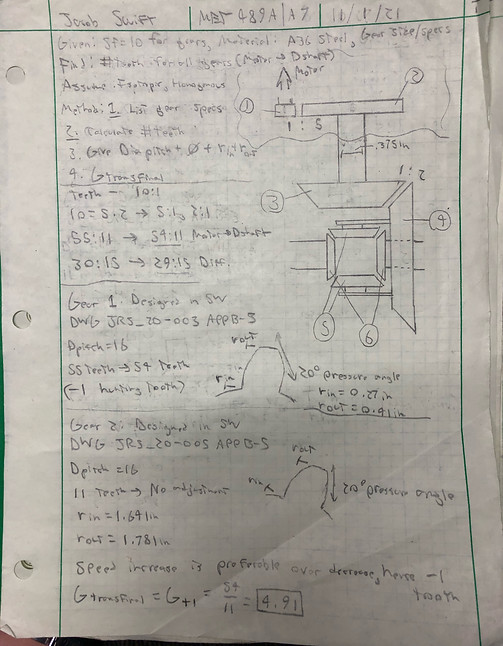 Jacob Swift | MET 489A | A7 | 11/1/21
Given: SF=10 for gears, Material: A36 Steel, Gear Size/specs
Find: #tooth for all gears (Motor → Dshaft)
Assume: Isotropic, Homogenous
Method: 1. List gear specs
2. Calculate #teeth
3. Give Dia pitch + Ø + rin + rout
4. Gtransfinal
Motor
1
2
1 : 5
.375in
Teeth - 10:1
10 = 5.2 → 5:1, 2:1
55:11 → 54:11 Motor → Dshaft
30:15 → 29:15 Diff.
1:2
3
4
5
6
Gear 1: Designed in SW
DWG JRS_20-003 APP B-5
Dpitch = 16
55 Teeth → 54 Teeth
(-1 hunting tooth)
rout
rin
20° pressure angle
rin = 0.27in
rout = 0.41in
Gear 2: Designed in SW
DWG JRS_20-005 APP B-5
Dpitch = 16
11 Teeth → No adjustment
rin = 1.641in
rout = 1.781in
rout
rin
20° pressure angle
Speed increase is preferable over decrease, hense -1
tooth
Gtransfinal = G+1 = 54/11 = 4.91